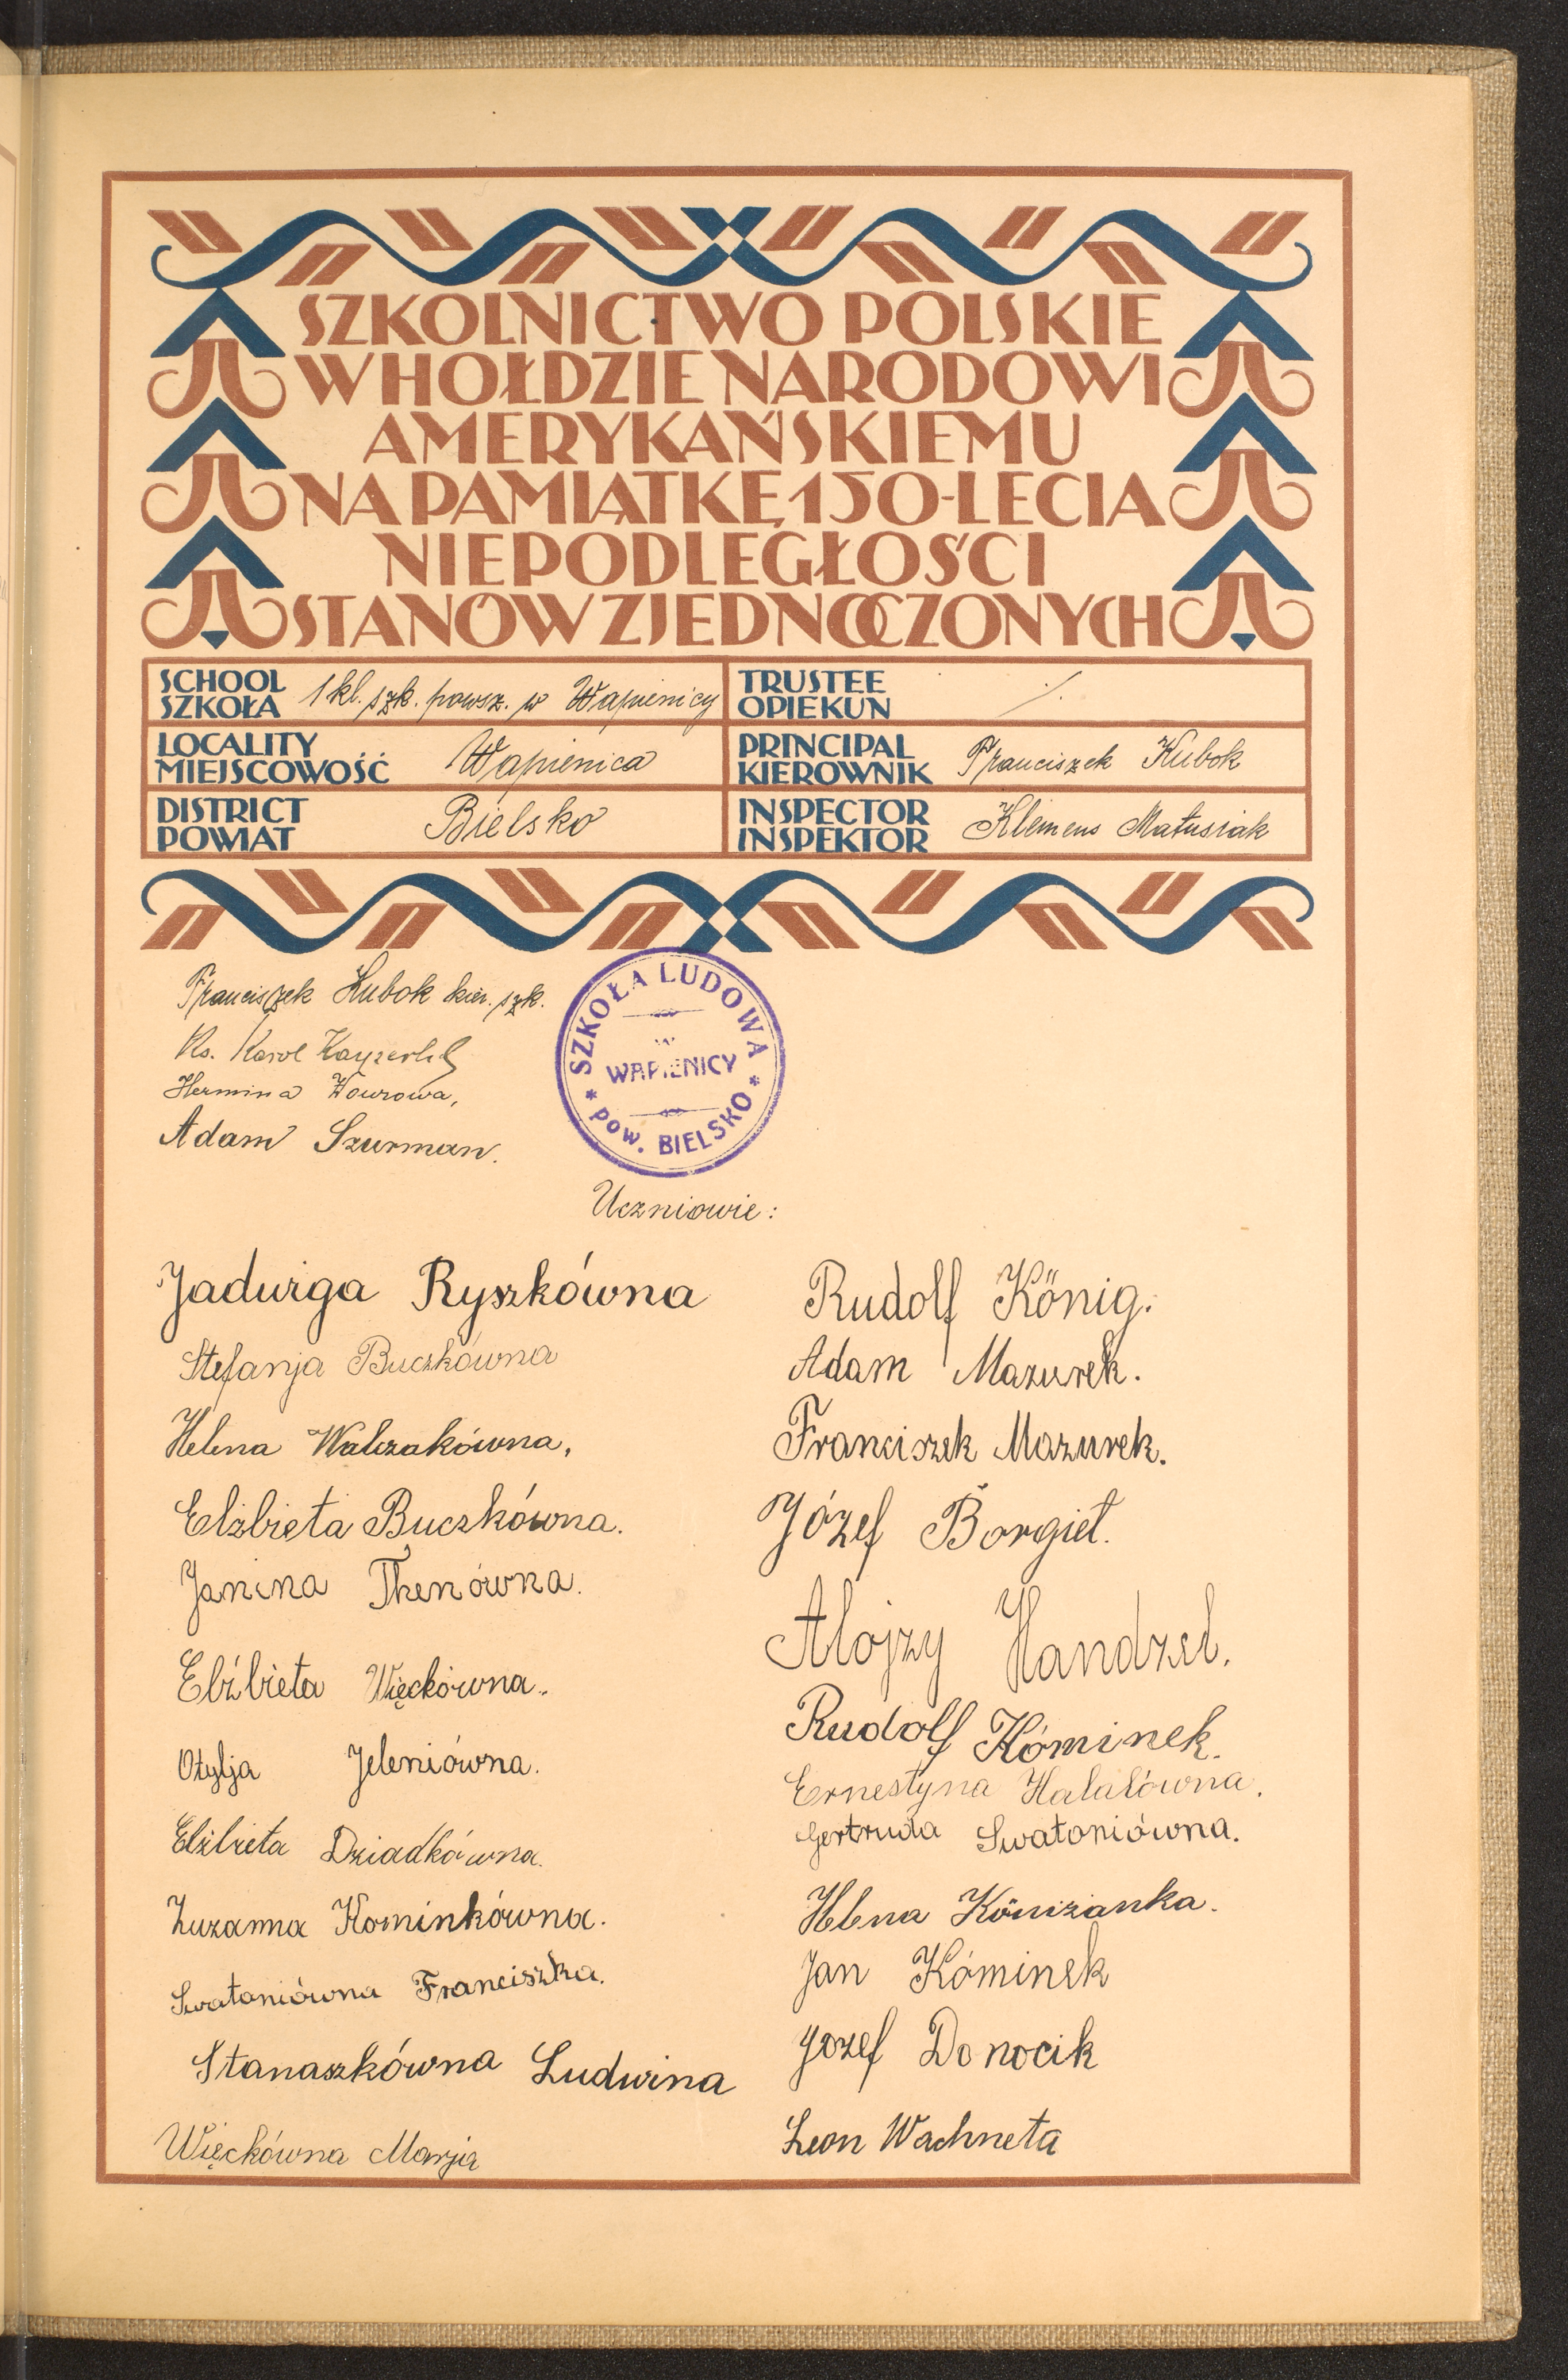 SZKOLNICTWO POLSKIE
W HOŁDZIE NARODOWI
AMERYKAŃSKIEMU
NA PAMIĄTKĘ 150-LECIA
NIEPODLEGŁOŚCI
STANÓW ZJEDNOCZONYCH
SCHOOL
SZKOŁA 1 kl. szk. powsz. w Wapienicy
TRUSTEE
OPIEKUN ./.
LOCALITY
MIEJSCOWOŚĆ Wapienica
PRINCIPAL
KIEROWNIK Franciszek Kubok
DISTRICT
POWIAT Bielsko
INSPECTOR
INSPEKTOR Klemens Matusiak
Franciszek Kubok kier. szk.
Ks. Karol
Hermina
Adam Szurman.
SZKOŁA LUDOWA
w
WAPIENICY
* POW. BIELSKO *
Uczniowie:
Jadwiga Ryszkówna
Stefanja Buczkówna
Helena Walczakówna,
Elżbieta Buczkówna.
Janina Thenówna.
Elżbieta Więckówna.
Otylja Jeleniówna.
Elżbieta Dziadkówna.
Zuzanna Kominkówna.
Swatoniówna Franciszka.
Stanaszkówna Ludwina
Więckówna Marja
Rudolf König.
Adam Mazurek.
Franciszek Mazurek.
Józef Borgieł.
Alojzy Handzel.
Rudolf Kóminek.
Ernestyna Halatówna.
Gertruda Swatoniówna.
Helena Köniżanka.
Jan Kóminek
Jozef Donocik
Leon Wachneta